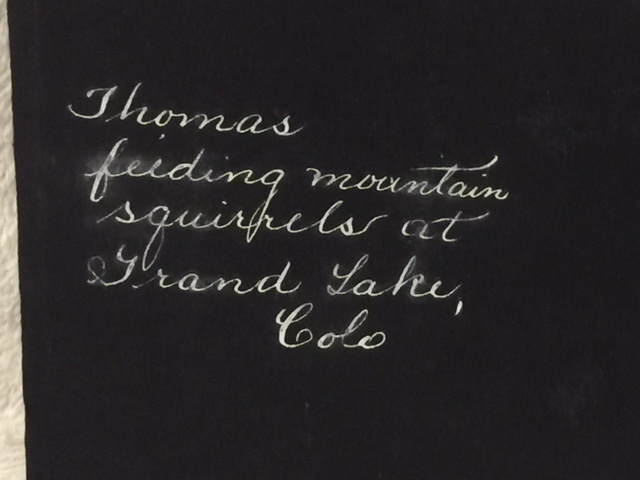 Thomas
feeding mountain
squirrels at
Grand Lake,
Colo